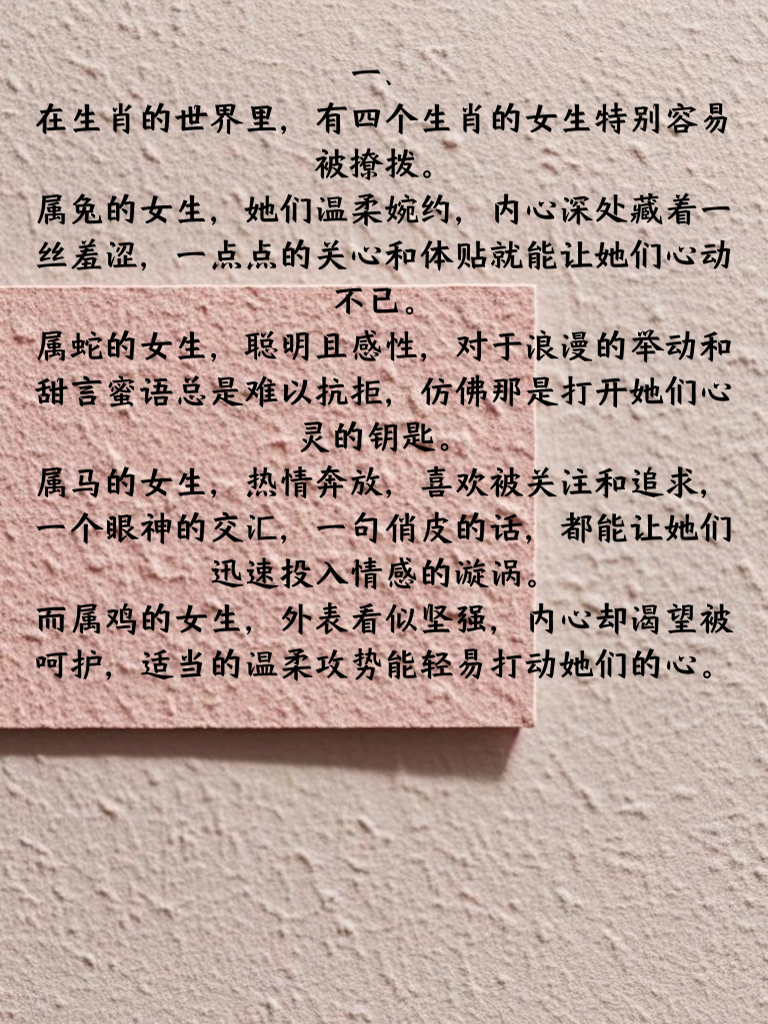 一、
在生肖的世界里，有四个生肖的女生特别容易
被撩拨。
属兔的女生，她们温柔婉约，内心深处藏着一
丝羞涩，一点点的关心和体贴就能让她们心动
不已。
属蛇的女生，聪明且感性，对于浪漫的举动和
甜言蜜语总是难以抗拒，仿佛那是打开她们心
灵的钥匙。
属马的女生，热情奔放，喜欢被关注和追求，
一个眼神的交汇，一句俏皮的话，都能让她们
迅速投入情感的漩涡。
而属鸡的女生，外表看似坚强，内心却渴望被
呵护，适当的温柔攻势能轻易打动她们的心。